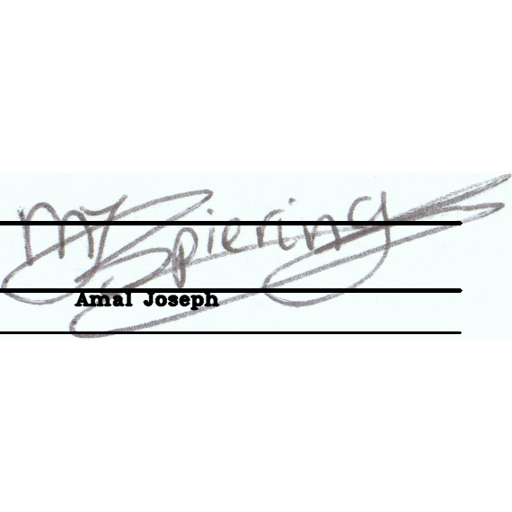 MJ Spiering
Amal Joseph